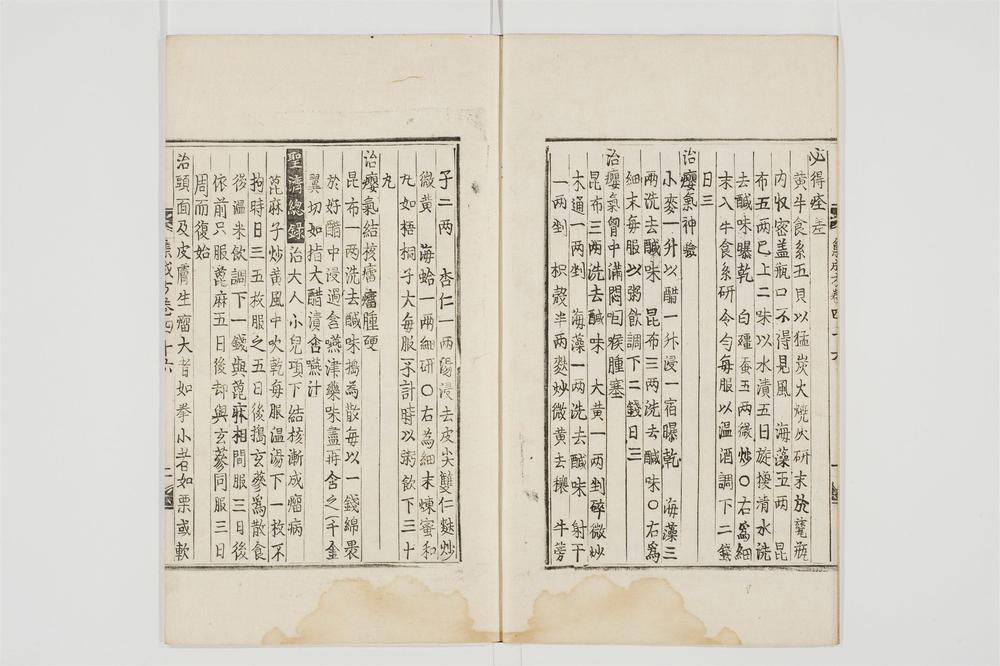 必得痊差
黄牛食系五具以猛炭火燒然研末於甆瓶
内收密盖瓶口不得見風　海藻五两　昆
布五两已上二味以水漬五日旋換清水洗
去鹹味曝乾　白殭蚕五两微炒〇右爲細
末入牛食系研令匀每服以温酒調下二錢
日三
治癭氣神驗
小麥一升以醋一升浸一宿曝乾　海藻三
两洗去鹹味　昆布三两洗去鹹味〇右爲
細末每服以粥飲調下二錢日三
治癭氣胷中滿悶咽喉腫塞
昆布三两洗去鹹味　大黄一两剉碎微炒
木通一两剉　海藻一两洗去鹹味　射干
一两剉　枳殻半两麩炒微黄去穰　牛蒡
集成方卷四十六
子二两　杏仁一两湯浸去皮尖雙仁麩炒
微黄　海蛤一两細研〇右為細末煉蜜和
丸如梧桐子大每服不計時以粥飲下三十
丸
治癭氣結核瘰瘰腫硬
昆布一两洗去鹹味搗為散每以一錢綿褁
於好醋中浸過含嚥津藥味盡再含之(千金
翼切如指大醋漬含嚥汁
聖濟總錄 治大人小兒項下結核漸成瘤病
萞麻子炒黄風中吹乾每服温湯下一枚不
拘時日三五枚服之五日後搗玄參爲散食
後温米飲調下一錢與萞麻相間服三日後
依前只服萞麻五日後却與玄蔘同服三日
周而復始
治頭面及皮膚生瘤大者如拳小者如栗或軟
集成方卷四十六　二